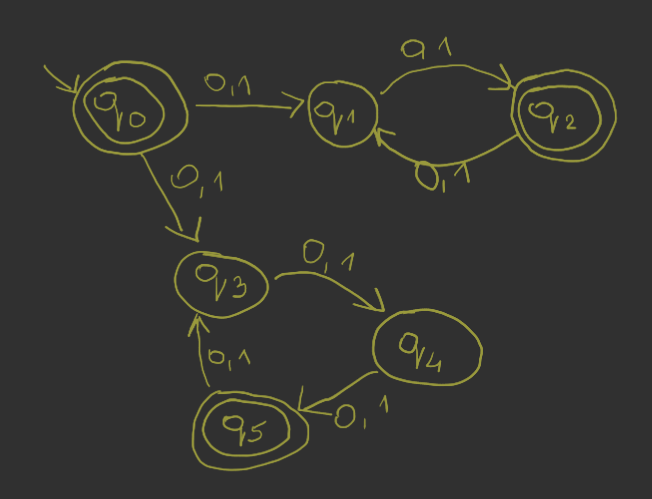 0 1
q0
0,1
q1
q2
0,1
0,1
q3
0,1
q4
0,1
q5
0,1